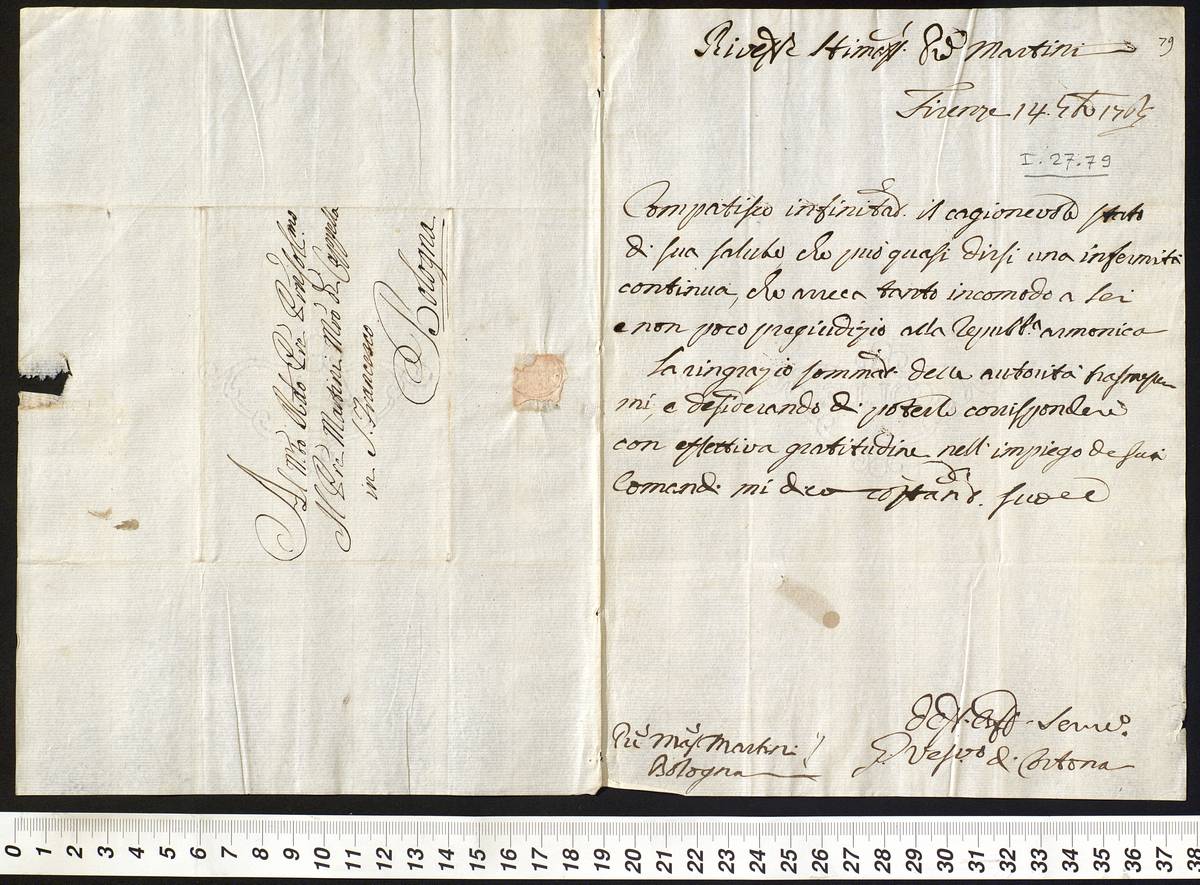 Al M.to Rdo Pre Pron Col.mo
Il Pre Martini Mro di Cappella
in S. Francesco
Bologna
79
Stimss. Pre Martini
Firenze 14. 1765
I. 27. 79
Compatisco infinitam. il cagionevole stato
di sua salute che può quasi dirsi una infermità
continua, che arreca tanto incomodo a Lei
e non poco pregiudizio alla Repubb.a armonica
La ringrazio sommam. delle autorità trasmesse
mi, e desiderando di poterle corrispondere
con effettiva gratitudine nell' impiego de suoi
Comandi mi dico costantem.
Aff. Serv.e
G. Vesvo di Cortona
Pre Mas Martini
Bologna
0 1 2 3 4 5 6 7 8 9 10 11 12 13 14 15 16 17 18 19 20 21 22 23 24 25 26 27 28 29 30 31 32 33 34 35 36 37 38